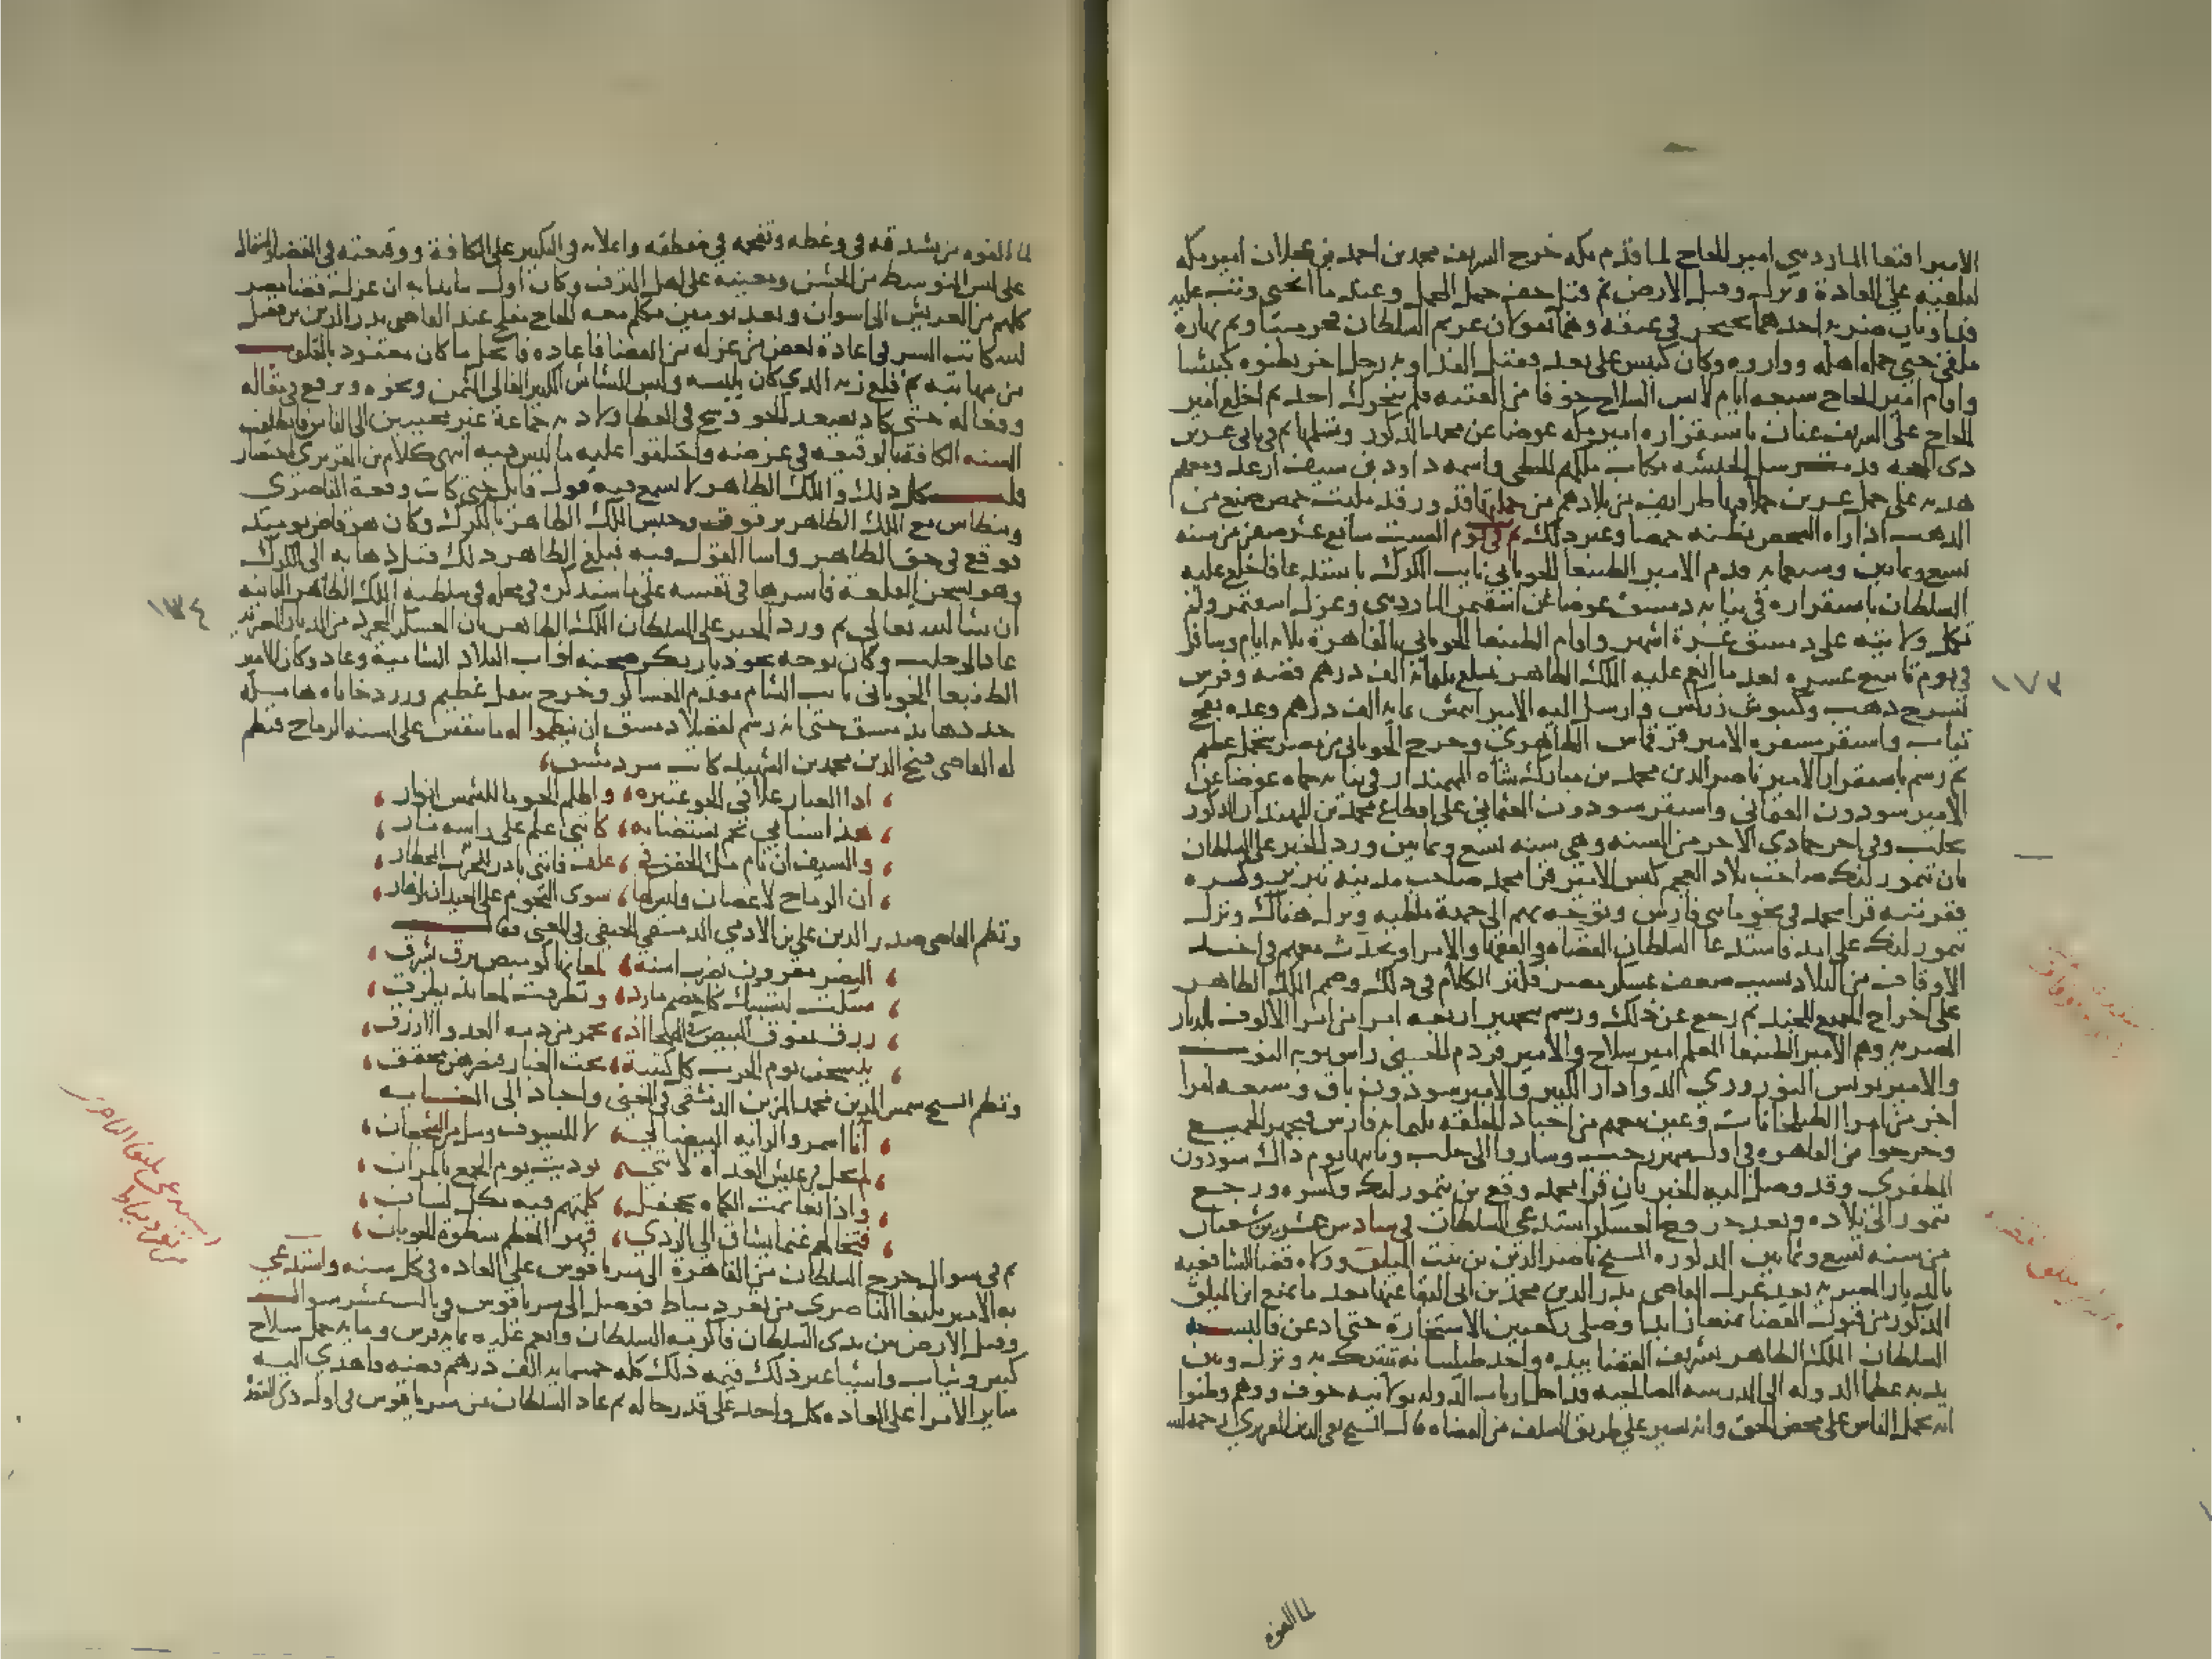 الامير اقبغا المارديني امير الحاج لما قدم مكه خرج الشريف محمد بن احمد بن عجلان امير مكه
لتلقيه على العادة ونزل وقبل الارض ثم قبل خف جمل المحمل وعند ما انحنى وثب عليه
فداويان ضربه احدهما بخنجر في عنقه وهما يقولان غريم السلطان فخر ميتا وتم نهاره
ملقى حتى حمله اهله وواروه وكان كبيش على بعد فقتل الفداويه رجل اخر يظنوه كبيشا
واقام امير الحاج سبعه ايام لابس السلاح خوفا من الفتنه فلم يتحرك احد ثم اخلع امير
الحاج على الشريف عنان باستقراره امير مكه عوضا عن محمد المذكور وتسلمها ثم في ثاني عشرين
ذي الحجه قدمت رسل الحبشه بكتاب ملكهم الحطي واسمه داود بن سيف ارعد ومعهم
هديه على احد وعشرين حملا فيها طرايف من بلادهم من جملتها قدور قد مليت حمص صنع من
الذهب اذا راه الشخص يظنه حمصا وغير ذلك ثم في يوم السبت سابع عشر صفر من سنه
تسع وثمانين وسبعمايه قدم الامير الطنبغا الجوباني نايب الكرك باستدعا فاخلع عليه
السلطان باستقراره في نيابه دمشق عوضا عن اشقتمر المارديني وعزل اشقتمر ولم
تكمل ولايته على دمشق عشرة اشهر واقام الطنبغا الجوباني بالقاهرة ثلاثه ايام وسافر
في يوم تاسع عشره بعد ما انعم عليه الملك الظاهر بمبلغ ثلثمائة الف درهم فضه وفرس
بسرج ذهب وكنبوش زركش وارسل اليه الامير ايتمش بمايه الف درهم وعده بقج
ثياب واستقر مسفره الامير قرقماس الظاهري وخرج الجوباني من مصر بتجمل عظيم
ثم رسم باستقرار الامير ناصر الدين محمد بن مبارك شاه المهمندار في نيابه حماه عوضا عن
الامير سودون العثماني واستقر سودون العثماني على اقطاع محمد بن المهمندار المذكور
بحلب وفي اخر جمادى الاخر من السنه وهي سنه تسع وثمانين ورد الخبر على السلطان
بان تيمور لنك صاحب بلاد العجم كبس الامير قرا محمد صاحب مدينه تبريز وكسره
ففر منه قرا محمد في نحو مايتي فارس وتوجه بهم الى جهة ملطيه ونزل هناك ونزل
تيمور لنك على امد فاستدعا السلطان القضاه والفقها والامرا وتحدث معهم في اخذ
الاوقاف من البلاد بسبب ضعف عسكر مصر فكثر الكلام في ذلك وصمم الملك الظاهر
على اخراج الجميع للجند ثم رجع عن ذلك ورسم بتجهيز اربعه امرا من امرا الالوف بالديار
المصريه وهم الامير الطنبغا المعلم امير سلاح والامير قردم الحسني راس نوبه النوب
والامير يونس النوروزي الدوادار الكبير والامير سودون باق وسبعه امرا
اخر من امرا الطبلخانات وعين معهم من اجناد الحلقه ثلثمايه فارس فتجهز الجميع
وخرجوا من القاهره في اول شهر رجب وساروا الى حلب ونايبها يوم ذاك سودون
المظفري وقد وصل اليه الخبر بان قرا محمد وقع بن تيمور لنك وكسره ورجع
تيمور الى بلاده وبعد خروج العسكر استدعى السلطان في سادس عشرين شعبان
من سنه تسع وثمانين المذكوره الشيخ ناصر الدين بن بنت الميلق وولاه قضا الشافعيه
بالديار المصريه بعد عزل القاضي بدر الدين محمد بن ابي البقا عنها بعد ما تمنع ابن الميلق
المذكور من قبول القضا تمنعا زايدا وصلى ركعتين الاستخارة حتى اذعن فالبسه
السلطان الملك الظاهر تشريف القضا بيده واخذ طيلسانه يتبرك به ونزل وبين
يديه عظما الدوله الى المدرسه الصالحيه فداخل ارباب الدوله بولايته خوف ووهم وظنوا
انه يحمل الناس على محض الحق وانه يسير على طريق السلف من القضاه قال الشيخ تقي الدين المقريزي رحمه الله
لما الفوه
١٧٣
لما الفوه من تشدقه في وعظه وتفخمه في منطقه واعلانه في التكبير على الكافة ووقيعته في القضاه
على لبس المتوسط من الخشن ومعيبه على اهل الترف وكان اول ما بدا به ان عزل قضاه مصر
كلهم من العريش الى اسوان وبعد يومين تكلم معه الحاج مفلح عبد القاضي بدر الدين بن فضل
الله كاتب السر في اعادة بعض من عزله من القضا فاعاده فانحل ما كان معقود بالقلوب
من مهابته ثم قلع زيه الذي كان يلبسه ولبس الشاش الكبير الغالي الثمن ونحوه وترفع في مقاله
وفعاله حتى كاد يصعد الجو وشح في العطا ولاذ به جماعة غير محببين الى الناس فانطلقت
السنه الكافة بالوقيعه في عرضه واختلقوا عليه ما ليس فيه انتهى كلام المقريزي باختصار
قلت كل ذلك والملك الظاهر لا يسمع فيه قول قايل حتى كانت وقعة الناصري
ومنطاش مع الملك الظاهر برقوق وحبس الملك الظاهر بالكرك وكان هو قاض يومئذ
فوقع في حق الظاهر واسا القول فيه فبلغ الظاهر ذلك قبل ذهابه الى الكرك
وهو بسجن القلعة فاسرها في نفسه على ما سنذكره في محله في سلطنه الملك الظاهر الثانيه
ان شا الله تعالى ثم ورد الخبر على السلطان الملك الظاهر بان العسكر المجرد من الديار المصريه
عاد الى حلب وكان توجه نحو ديار بكر صحبته نواب البلاد الشامية وعاد وكان الامير
الطنبغا الجوباني نايب الشام مقدم العساكر وخرج بثقل عظيم ورد خاناه هايله
جددها بدمشق حتى انه رسم لفضلا دمشق ان ينظموا له ما ينقش على اسنه الرماح فنظم
له القاضي فتح الدين محمد بن الشهيد كاتب سر دمشق
اذا الغبار علا في الجو عثيره واظلم الجو ما للشمس انوار
هذا سناني نجم يستضا به كانني علم على راسه نار
والسيف ان نام ملء الجفن في غلف فانني بارز للحرب خطار
ان الرماح لاغصان وليس لها سوى النجوم على العيدان ازهار
ونظم القاضي صدر الدين علي بن الادمي الدمشقي الحنفي في المعنى فقال
النصر مقرون بضرب اسنه لمعانها كوميض برق يشرق
سبكت لتسبك كل خصم مارد وتطرقت لمعاند يتطرق
زرق تفوق البيض في الهيجا اذ يحمر من دمه العدو الازرق
ينسجن يوم الحرب كل كتيبة تحت الغبار فنصرهن محقق
ونظم الشيخ شمس الدين محمد المزين الدمشقي في المعنى واجاد الى الغايه
انا اسمر والرايه البيضا لي لا للسيوف وسل من الشجعان
لم يحل لي عيش العداه لانني نوديت يوم الجمع بالمران
واذا تغاتمت الكماه بجحفل كلمتهم فيه بكل لسان
فتخالهم غنما تساق الى الردى قهرا لعظم سطوة الجوبان
ثم في شوال خرج السلطان من القاهرة الى سرياقوس على العاده في كل سنه واستدعى
به الامير يلبغا الناصري من ثغر دمياط فوصل الى سرياقوس في ثالث عشر شوال
وقبل الارض بين يدي السلطان فاكرمه السلطان وانعم عليه بمايه فرس ومايه جمل وسلاح
كثير وثياب واشيا غير ذلك قيمه ذلك كله خمسمايه الف درهم فضه واهدى اليه
ساير الامرا على العاده كل واحد على قدر حاله ثم عاد السلطان من سرياقوس في اول ذي القعده
١٣٤
يلبغا الناصري
من ثغر دمياط